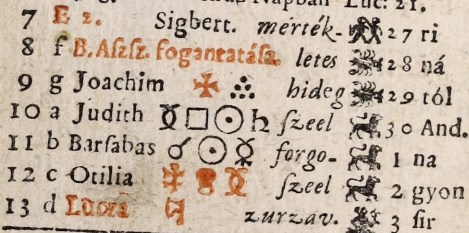 Luc: 21.
7 E 2. Sigbert. mérték- 27 ri
8 f B. Aſzſz. fogantatáſa. letes 28 ná
9 g Joachim hideg 29 tól
10 a Judith ☿ □ ☉ ♄ ſzeel 30 And.
11 b Barſabas ☌ ☉ ☿ forgo- 1 na
12 c Otilia ſzeel 2 gyon
13 d Lucza zurzav. 3 ſir